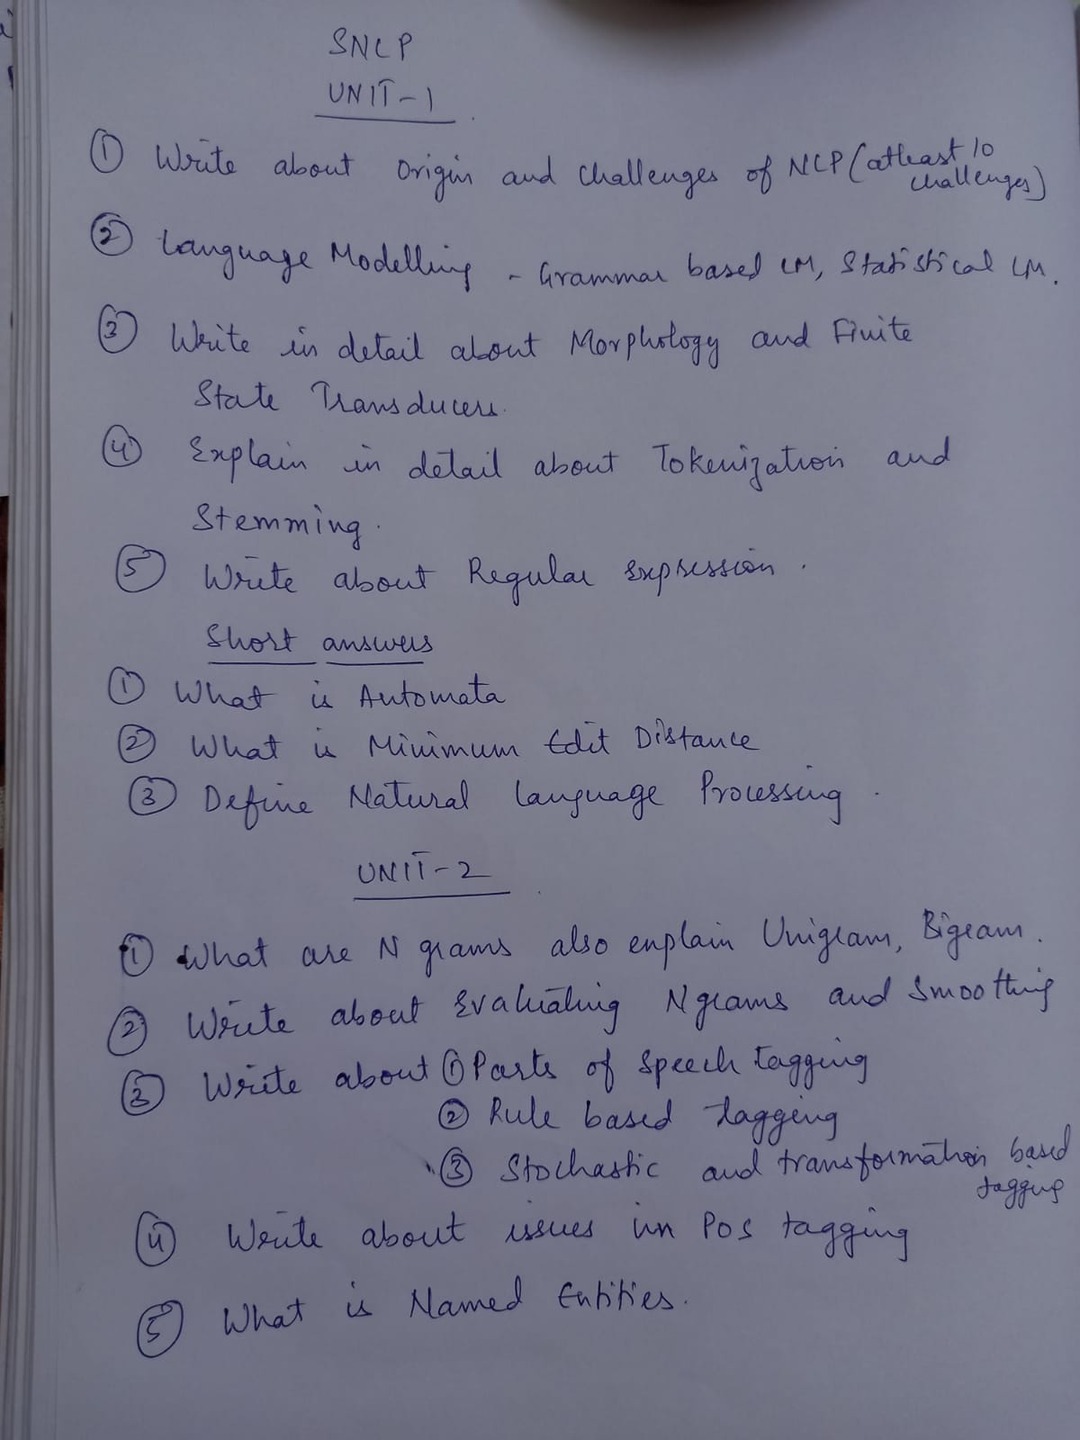 SNLP
UNIT-1
① Write about Origin and Challenges of NLP (atleast 10
challenges)
② Language Modelling - Grammar based LM, Statistical LM.
③ Write in detail about Morphology and Finite
State Transducers.
④ Explain in detail about Tokenization and
Stemming.
⑤ Write about Regular Expression.
Short answers
① What is Automata
② What is Minimum Edit Distance
③ Define Natural Language Processing.
UNIT-2
① What are N grams also explain Unigram, Bigram.
② Write about Evaluating N grams and Smoothing
③ Write about ① Parts of Speech tagging
② Rule based tagging
③ Stochastic and transformation based
tagging
④ Write about issues in POS tagging
⑤ What is Named Entities.